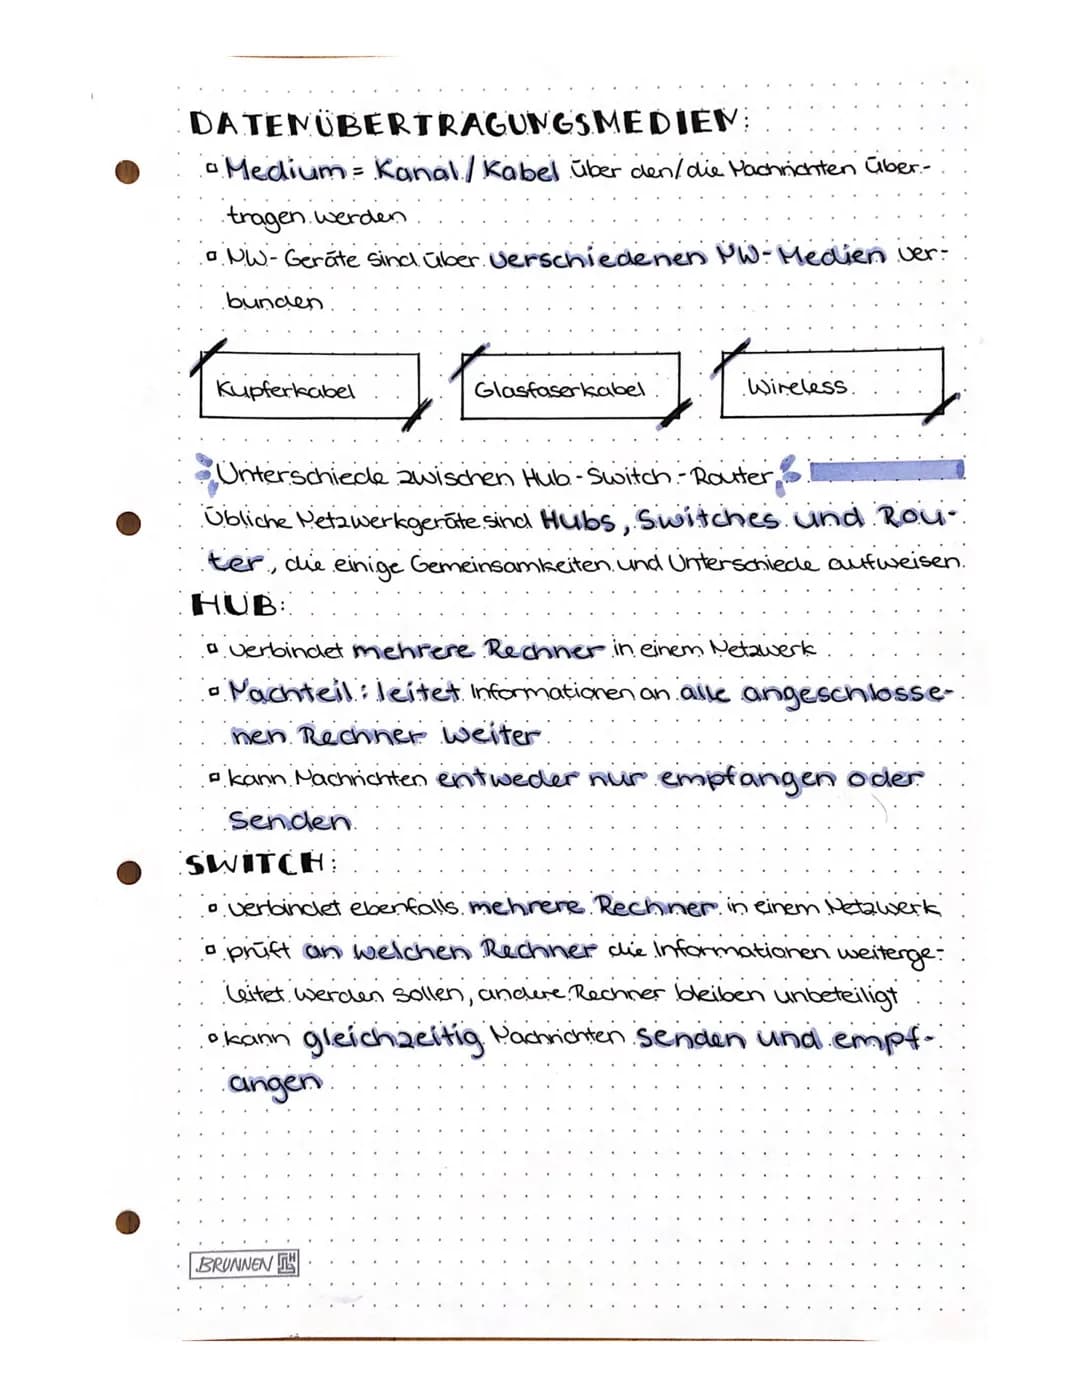 DATENÜBERTRAGUNGSMEDIEN:
▫ Medium = Kanal / Kabel über den/die Nachrichten über-
tragen werden
▫ NW-Geräte sind über verschiedenen NW-Medien ver-
bunden
Kupferkabel Glasfaserkabel Wireless
Unterschiede zwischen Hub-Switch-Router
Übliche Netzwerkgeräte sind Hubs, Switches und Rou-
ter, die einige Gemeinsamkeiten und Unterschiede aufweisen.
HUB:
▫ verbindet mehrere Rechner in einem Netzwerk
▫ Nachteil: leitet Informationen an alle angeschlosse-
nen Rechner weiter
▫ kann Nachrichten entweder nur empfangen oder
senden
SWITCH:
▫ verbindet ebenfalls mehrere Rechner in einem Netzwerk
▫ prüft an welchen Rechner die Informationen weiterge-
leitet werden sollen, andere Rechner bleiben unbeteiligt
▫ kann gleichzeitig Nachrichten senden und empf-
angen
BRUNNEN